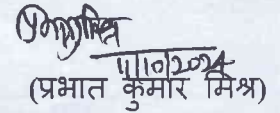 11/10/2024
(प्रभात कुमार मिश्र)